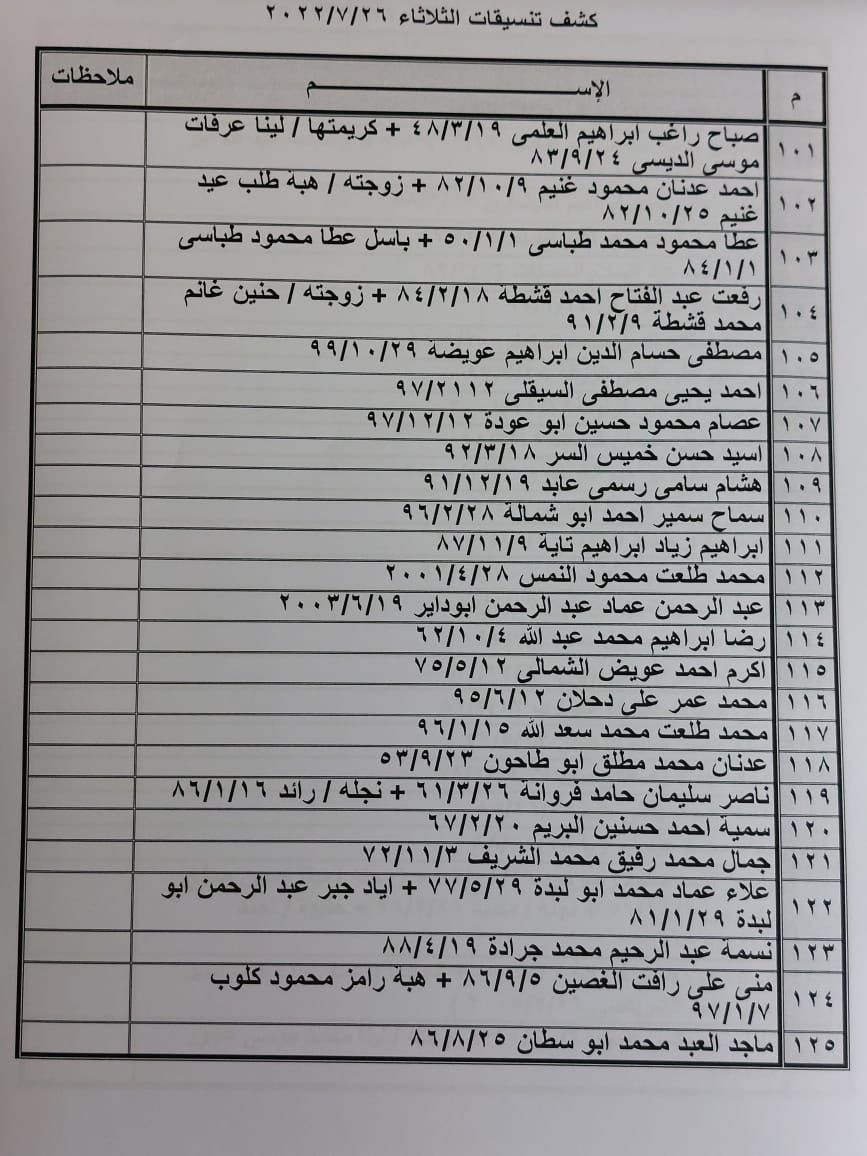 كشف تنسيقات الثلاثاء ٢٠٢٢/٧/٢٦
م الإســــــــم ملاحظات
١٠١ صباح راغب ابراهيم العلمى ٤٨/٣/١٩ + كريمتها / لينا عرفات
موسى الديسى ٨٣/٩/٢٤
١٠٢ احمد عدنان محمود غنيم ٨٢/١٠/٩ + زوجته / هبة طلب عيد
غنيم ٨٢/١٠/٢٥
١٠٣ عطا محمود محمد طباسى ٥٠/١/١ + باسل عطا محمود طباسى
٨٤/١/١
١٠٤ رفعت عبد الفتاح احمد قشطة ٨٤/٢/١٨ + زوجته / حنين غانم
محمد قشطة ٩١/٢/٩
١٠٥ مصطفى حسام الدين ابراهيم عويضة ٩٩/١٠/٢٩
١٠٦ احمد يحيى مصطفى السيقلى ٩٧/٢١١٢
١٠٧ عصام محمود حسين ابو عودة ٩٧/١٢/١٢
١٠٨ اسيد حسن خميس السر ٩٢/٣/١٨
١٠٩ هشام سامى رسمى عابد ٩١/١٢/١٩
١١٠ سماح سمير احمد ابو شمالة ٩٦/٢/٢٨
١١١ ابراهيم زياد ابراهيم تاية ٨٧/١١/٩
١١٢ محمد طلعت محمود النمس ٢٠٠١/٤/٢٨
١١٣ عبد الرحمن عماد عبد الرحمن ابوداير ٢٠٠٣/٦/١٩
١١٤ رضا ابراهيم محمد عبد الله ٦٢/١٠/٤
١١٥ اكرم احمد عويض الشمالى ٧٥/٥/١٢
١١٦ محمد عمر على دحلان ٩٥/٦/١٢
١١٧ محمد طلعت محمد سعد الله ٩٦/١/١٥
١١٨ عدنان محمد مطلق ابو طاحون ٥٣/٩/٢٣
١١٩ ناصر سليمان حامد فروانة ٦١/٣/٢٦ + نجله / رائد ٨٦/١/١٦
١٢٠ سمية احمد حسنين البريم ٦٧/٢/٢٠
١٢١ جمال محمد رفيق محمد الشريف ٧٢/١١/٣
١٢٢ علاء عماد محمد ابو لبدة ٧٧/٥/٢٩ + اياد جبر عبد الرحمن ابو
لبدة ٨١/١/٢٩
١٢٣ نسمة عبد الرحيم محمد جرادة ٨٨/٤/١٩
١٢٤ منى على رافت الغصين ٨٦/٩/٥ + هبة رامز محمود كلوب
٩٧/١/٧
١٢٥ ماجد العبد محمد ابو سطان ٨٦/٨/٢٥